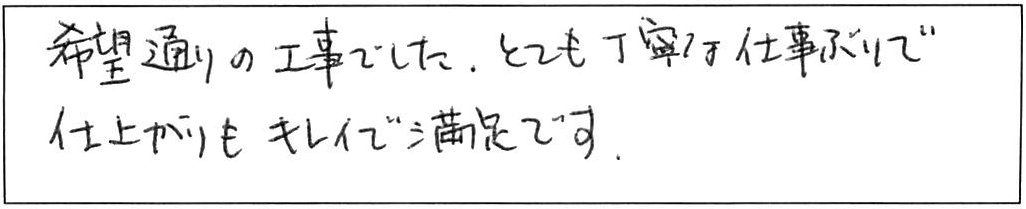 希望通りの工事でした。とても丁寧な仕事ぶりで
仕上がりもキレイで満足です。